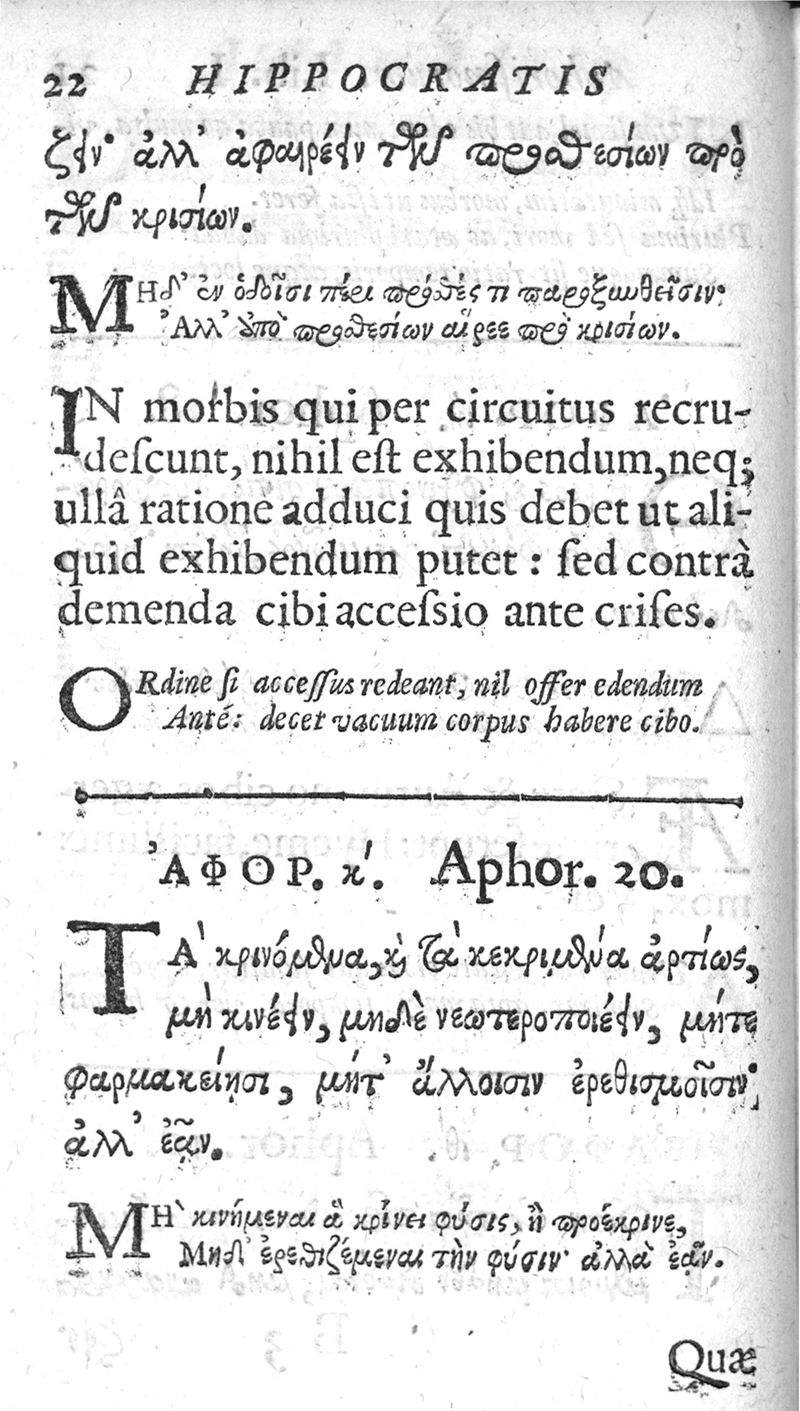 22 HIPPOCRATIS
ζειν· ἀλλ' ἀφαιρέειν τῶν προσθεσίων πρὸ
τῶν κρισίων.
ΜΗδ' ἐν ὁδοῖσι πέρι πρόσθες τι παροξυνθεῖσιν·
Ἀλλ' ὑπὸ προσθεσίων αἵρεε πρὸ κρισίων.
IN morbis qui per circuitus recru-
deſcunt, nihil eſt exhibendum, neq;
ullâ ratione adduci quis debet ut ali-
quid exhibendum putet : ſed contrà
demenda cibi acceſsio ante criſes.
ORdine ſi acceſſus redeant, nil offer edendum
Anté: decet vacuum corpus habere cibo.
ἈΦΟΡ. κ'. Aphor. 20.
ΤΑ' κρινόμενα, καὶ τὰ κεκριμένα ἀρτίως,
μὴ κινέειν, μηδὲ νεωτεροποιέειν, μήτε
φαρμακείῃσι, μήτ' ἄλλοισιν ἐρεθισμοῖσιν·
ἀλλ' ἐᾶν.
ΜΗ' κινήμεναι ἃ κρίνει φύσις, ἢ προέκρινε,
Μηδ' ἐρεθιζέμεναι τὴν φύσιν· ἀλλὰ ἐᾶν.
Quæ